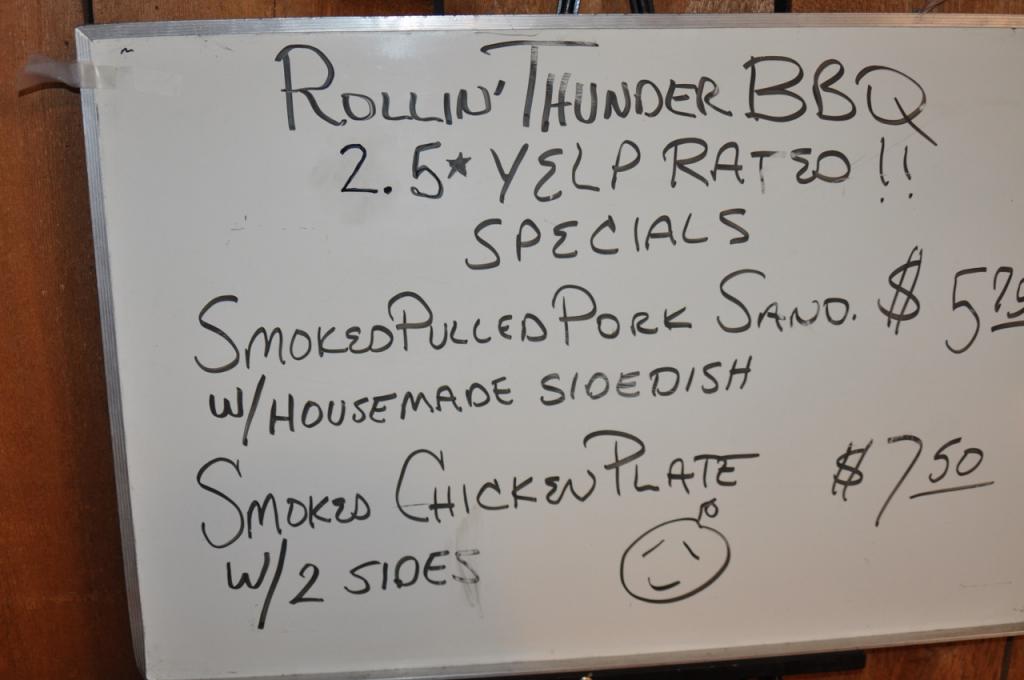 ROLLIN' THUNDER BBQ
2.5★ YELP RATED!!
SPECIALS
SMOKED PULLED PORK SAND. $5
W/HOUSEMADE SIDEDISH
SMOKED CHICKEN PLATE $7.50
W/2 SIDES